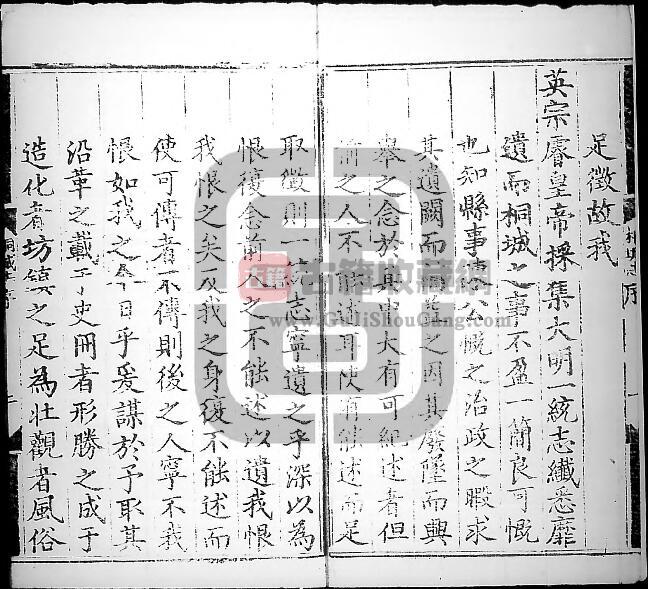 足徵故我
英宗睿皇帝採集大明一統志纖悉靡
遺而桐城之事不盈一簡良可慨
也知縣事陳公慨之治政之暇求
其遺闕而補苴之因其廢墜而興
舉之念於其中大有可紀述者但
前之人不能述耳使有能述而足
取徵則一統志寧遺之乎深以為
恨復念前人之不能述以遺我恨
我恨之矣及我之身復不能述而
使可傳者不傳則後之人寧不我
恨如我之今日乎爰謀於予取其
沿革之載于史冊者形勝之成于
造化者坊鎮之足為壯觀者風俗
序
古籍收藏网
www.GuJiShouCang.com